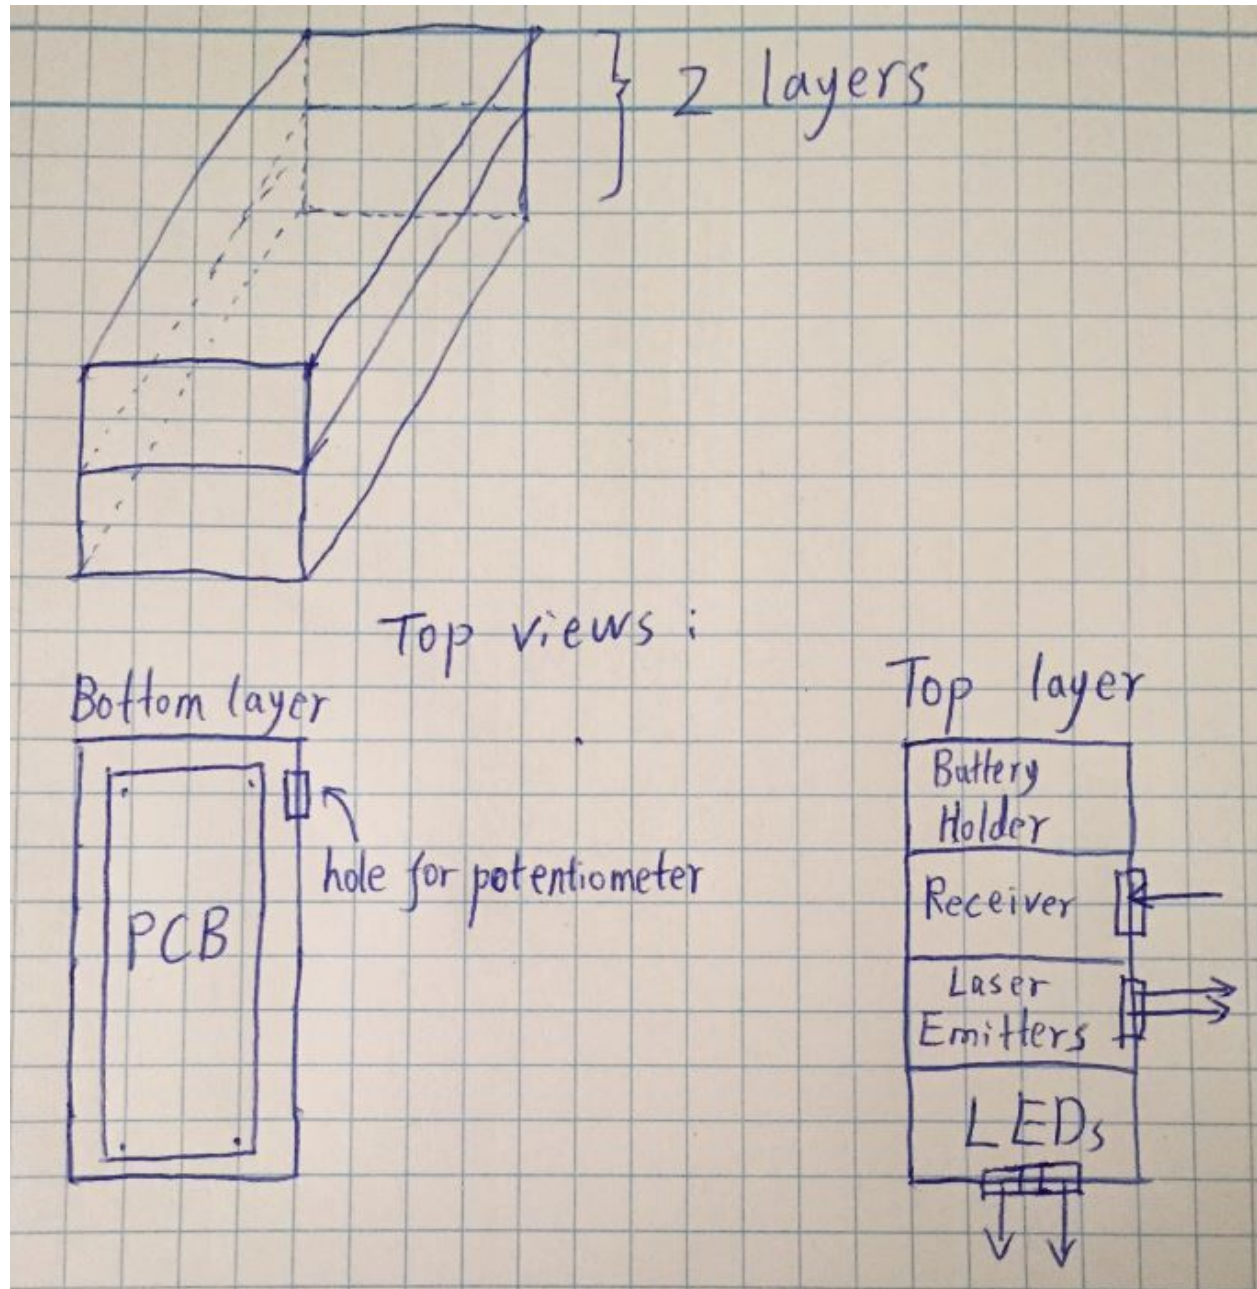 2 layers
Top views:
Bottom layer
Top layer
PCB
hole for potentiometer
Battery
Holder
Receiver
Laser
Emitters
LEDs